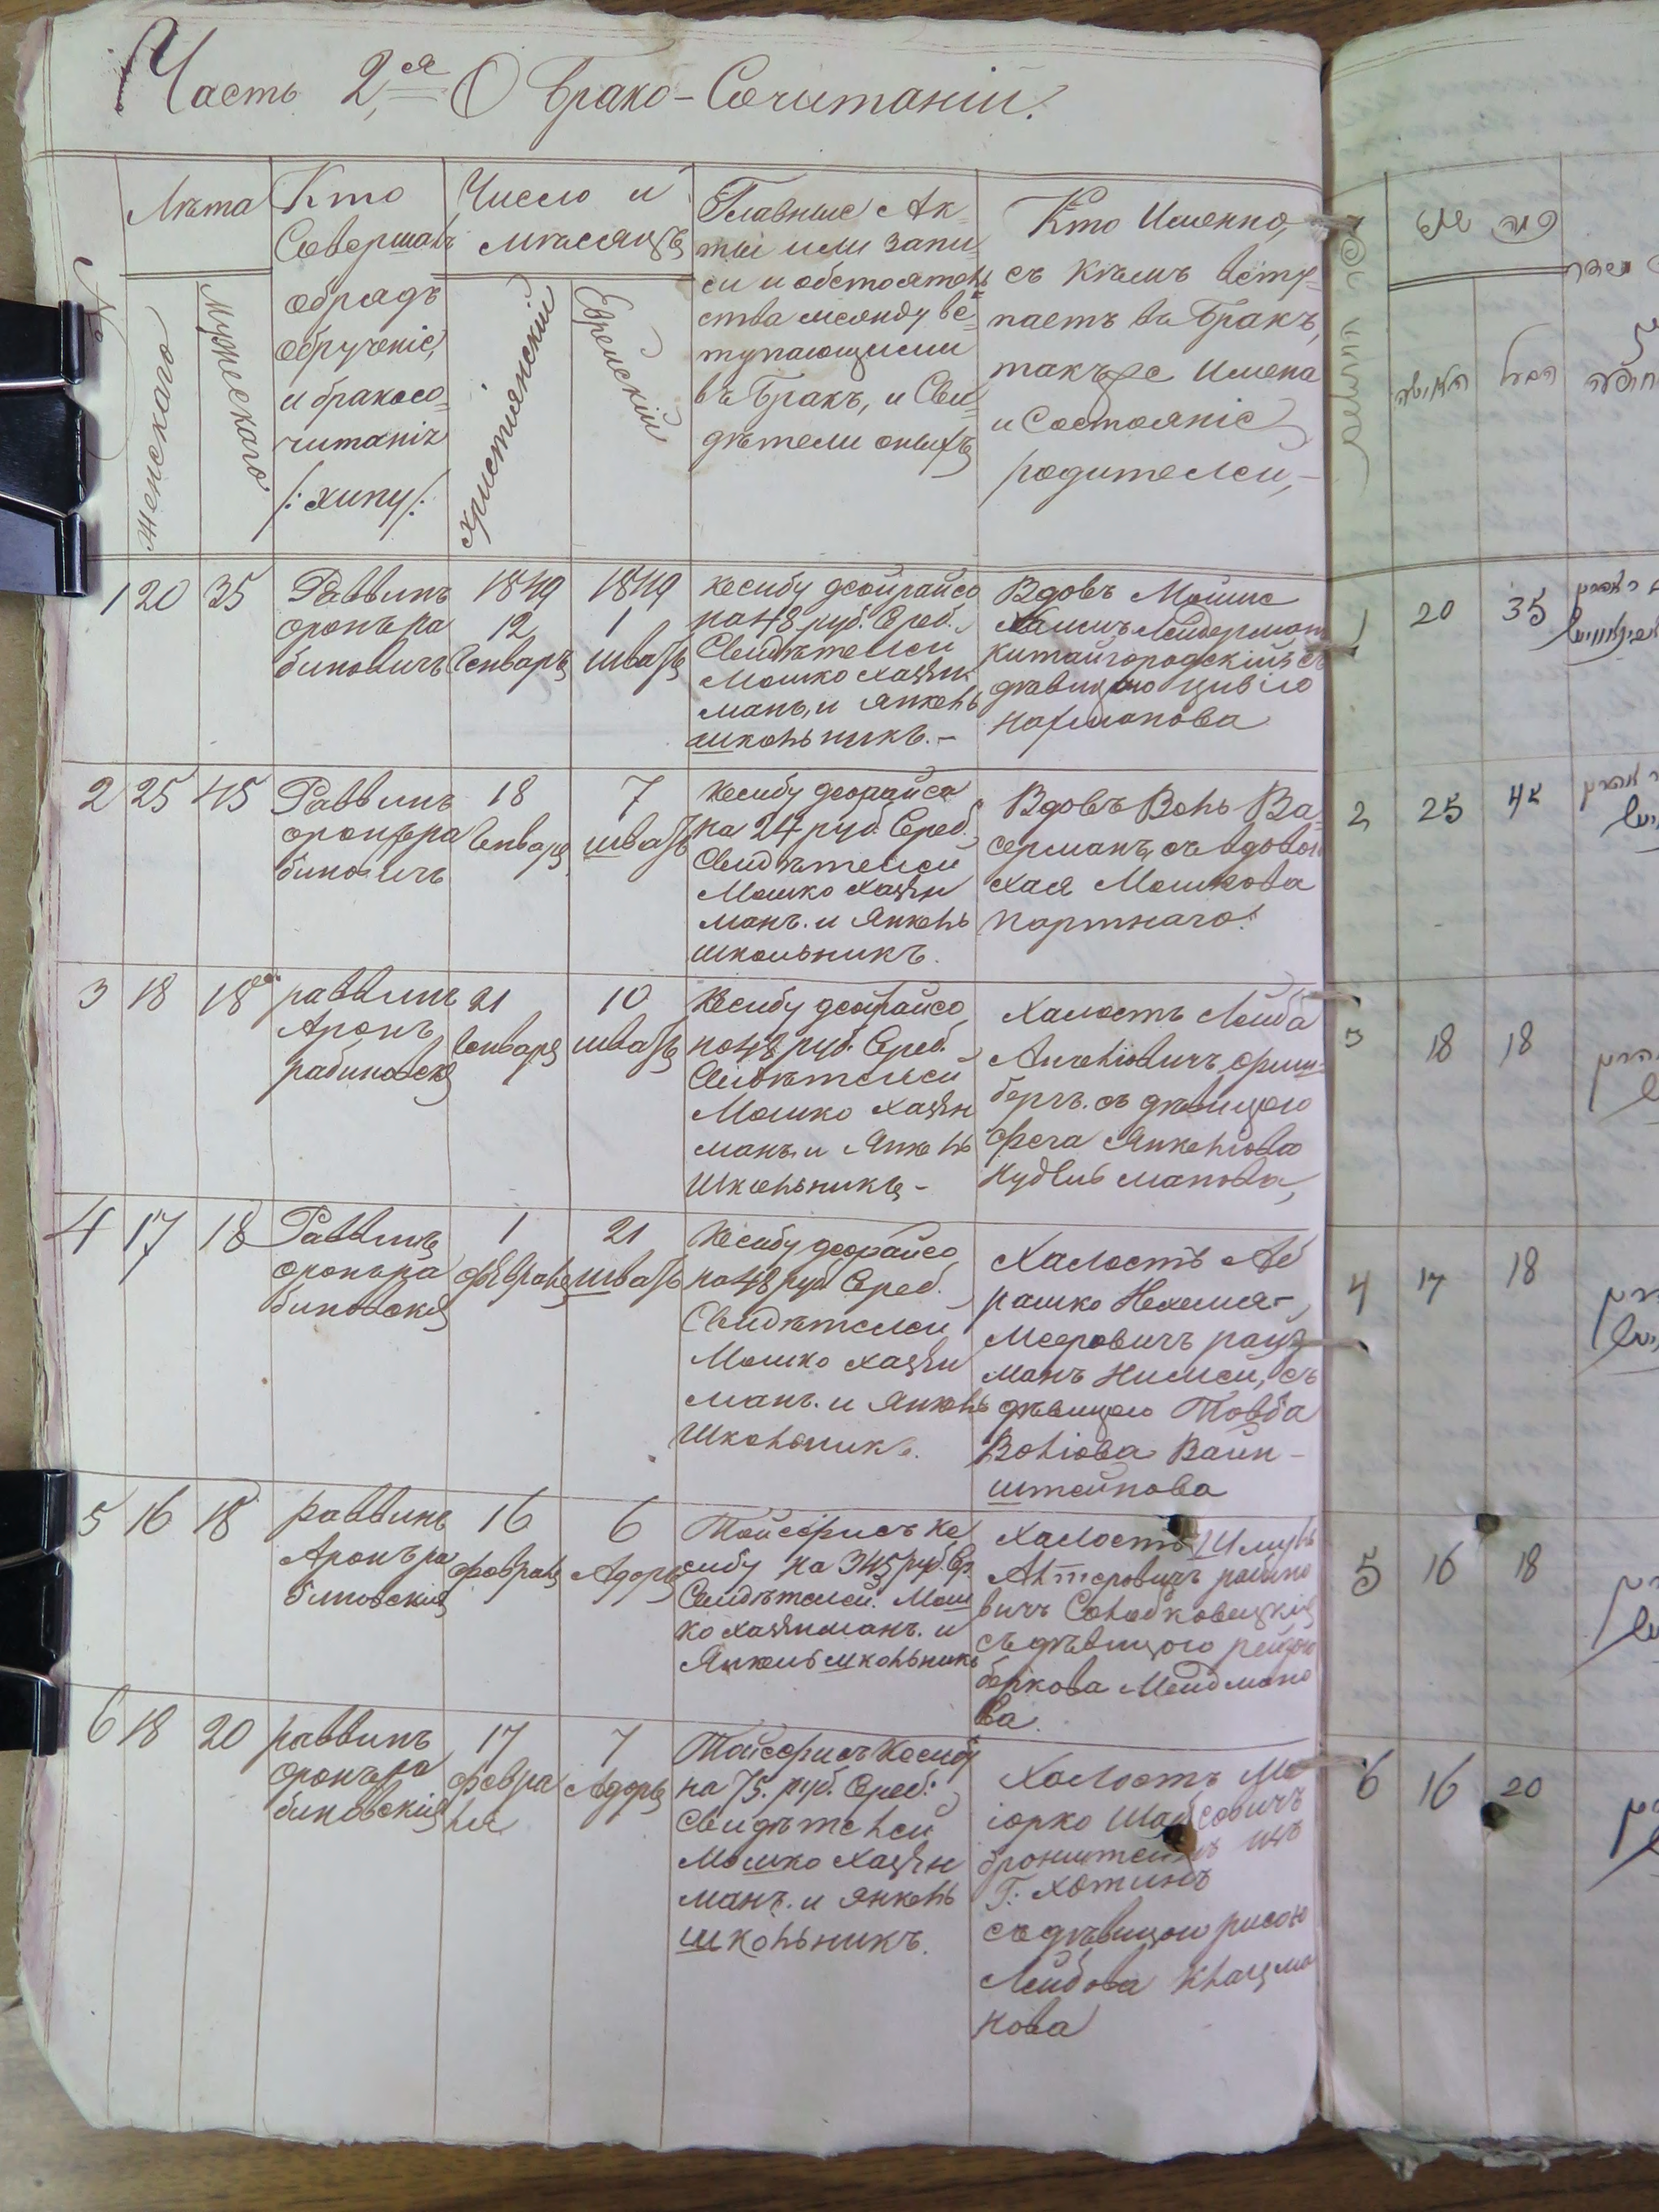 Часть 2,ая О Брако-Сочитаніи.
№
Лѣта
Женскаго
Мужескаго
Кто
Совершалъ
обрядъ
обрученіе,
и бракосо-
читаніе
/: хипу/:
Число и
мѣсяцъ
Христіянскій
Еврейскій
Главные Ак-
ты или запи
си и обстоятель
ства между вс-
тупающими
въ Бракъ, и Сви-
дѣтели оныхъ
Кто Именно,
съ Кѣмъ всту-
паетъ въ Бракъ,
такъже Имена
и Состояніе
родителей,-
1 20 35
Раввинъ
оронъ ра
биновичъ
1849
12
Генваръ
1849
1
шватъ
кесибу деойрайсо
на 48 руб. Сереб.
Свидѣтелеи
Мошко хазѣн
манъ, и Янкель
школьникъ.-
Вдовъ Мошко
Хаимъ Лейдерман
китайгородскій съ
дѣвицою цивіею
нахманова
2 25 45
Раввинъ
оронъ ра
биновичъ
18
Генваря
7
шватъ
кесибу деорайса
на 24 руб. Сереб.
Свидѣтелеи
Мошко хазѣн
манъ. и Янкель
школьникъ.
Вдовъ Воль Ва-
серманъ, съ вдовою
хая Мошкова
портнаго.
3 18 18
раввинъ
Аронъ
рабиновскій
21
Генваря
10
шватъ
Кесибу деойрайсо
на 48 руб. Сереб.
Свидѣтелеи
Мошко хазѣн
манъ и Янкель
Школьникъ-
Халостъ Лейба
берга. съ дѣвицою
Янкеліова
4 17 18
Раввинъ
оронъ ра
биновскій
1
февраля
21
шватъ
Кесибу деорайсо
на 48 руб Сереб.
Свидѣтелеи
Мошко хазѣн
манъ. и Янкель
Школьникъ.
Халостъ Аб
рашко Нехемія-
Мееровичъ
манъ съ
дѣвицею Товба
Воліова Вайн-
штейнова
5 16 18
раввинъ
Аронъ ра
биновскій
16
февраля
6
Адоръ
Тойсефисъ ке
сибу на 345 руб. Ср.
Свидѣтелеи. Мош
ко хазѣнманъ. и
Янкель школьникъ
Халостъ Шмуль
Альтеровичъ рабино
вичъ Солобковецкій
съ дѣвицою рейзою
беркова Мейдмано
ва.
6 18 20
раввинъ
оронъ ра
биновскій
17
февра
ля
7
Адоръ
Тойсефисъ Кесибу
на 75. руб. Сереб:
Свидѣтелеи
Мошко хазѣн
манъ. и Янкель
школьникъ.
Халостъ Ме
іорко
бронштейнъ изъ
Г. Хотинъ
съ дѣвицою рисою
Лейбова Клацма
нова
1 20 35
2 25 45
3 18 18
4 17 18
5 16 18
6 16 20